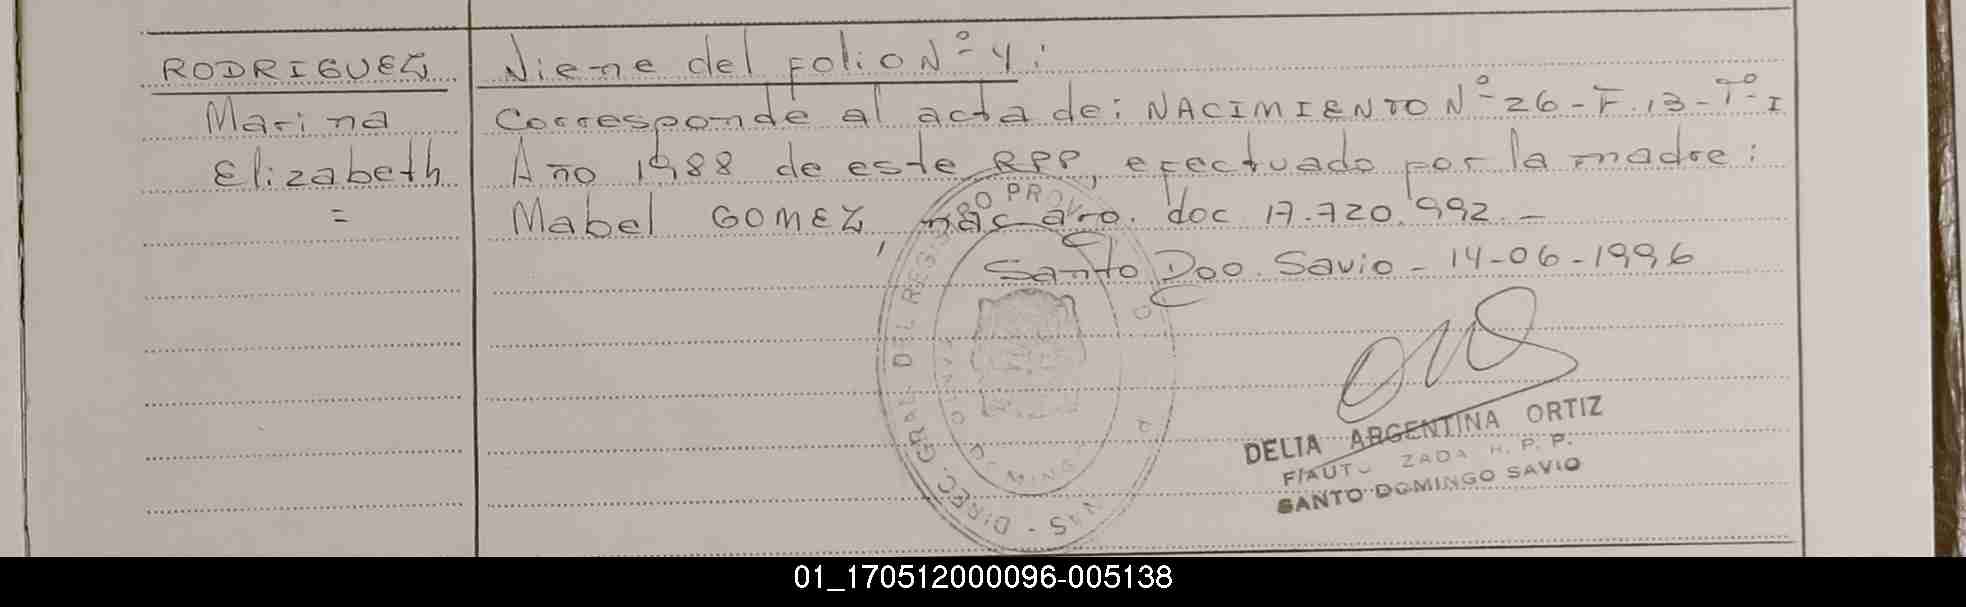 RODRIGUEZ
Marina
Elizabeth
=
Viene del folio Nº 4:
Corresponde al acta de: NACIMIENTO Nº 26 - F. 13 - Tº I
Año 1988 de este RPP, efectuado por la madre:
Mabel GOMEZ, nac. arg. doc 17.720.992.-
Santo Dgo. Savio - 14-06-1996
DIREC. GRAL. DEL REGISTRO PROV
DELIA ARGENTINA ORTIZ
SANTO DOMINGO SAVIO
01_170512000096-005138